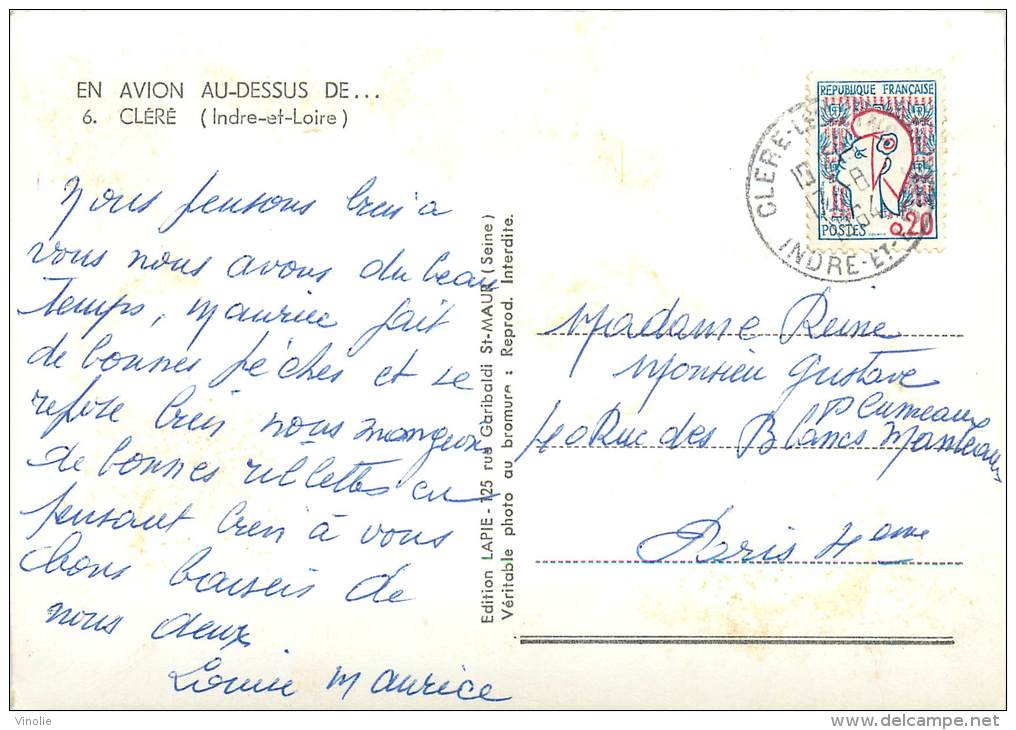 EN AVION AU-DESSUS DE...
6. CLÉRÉ (Indre-et-Loire)
Nous pensons bien a
vous nous avons du beau
temps, Maurice fait
de bonnes pêches et se
repose bien nous mangeons
de bonnes rillettes en
pensant bien à vous
bons baisers de
nous deux
Louise Maurice
Edition LAPIE - 125 rue Garibaldi St-MAUR (Seine)
Véritable photo au bromure : Reprod. Interdite.
REPUBLIQUE FRANÇAISE
0,20
POSTES
CLERE-LES-
19
17-8
1964
INDRE-ET-L
Madame Reine
Monsieu Gustave
Plumeaux
40 Rue des Blancs Manteaux
Paris 4eme
Vinolie
delcampe.net